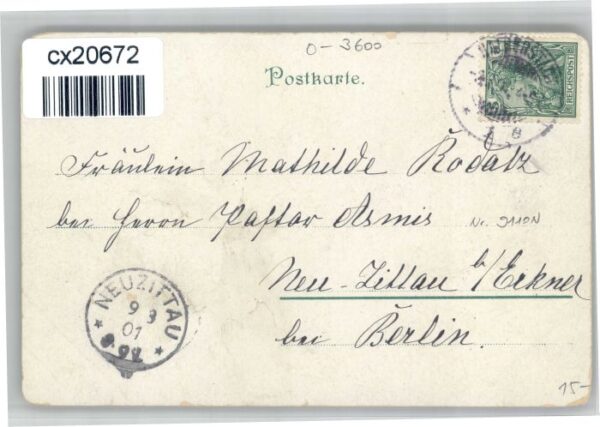 cx20672
0-3600
Postkarte.
REICHSPOST
Fräulein Mathilde Rodatz
bei Herrn Pastor Asmis
Nr. 3110N
Neu-Zittau b/Erkner
bei Berlin.
NEUZITTAU
9 3
01
15-